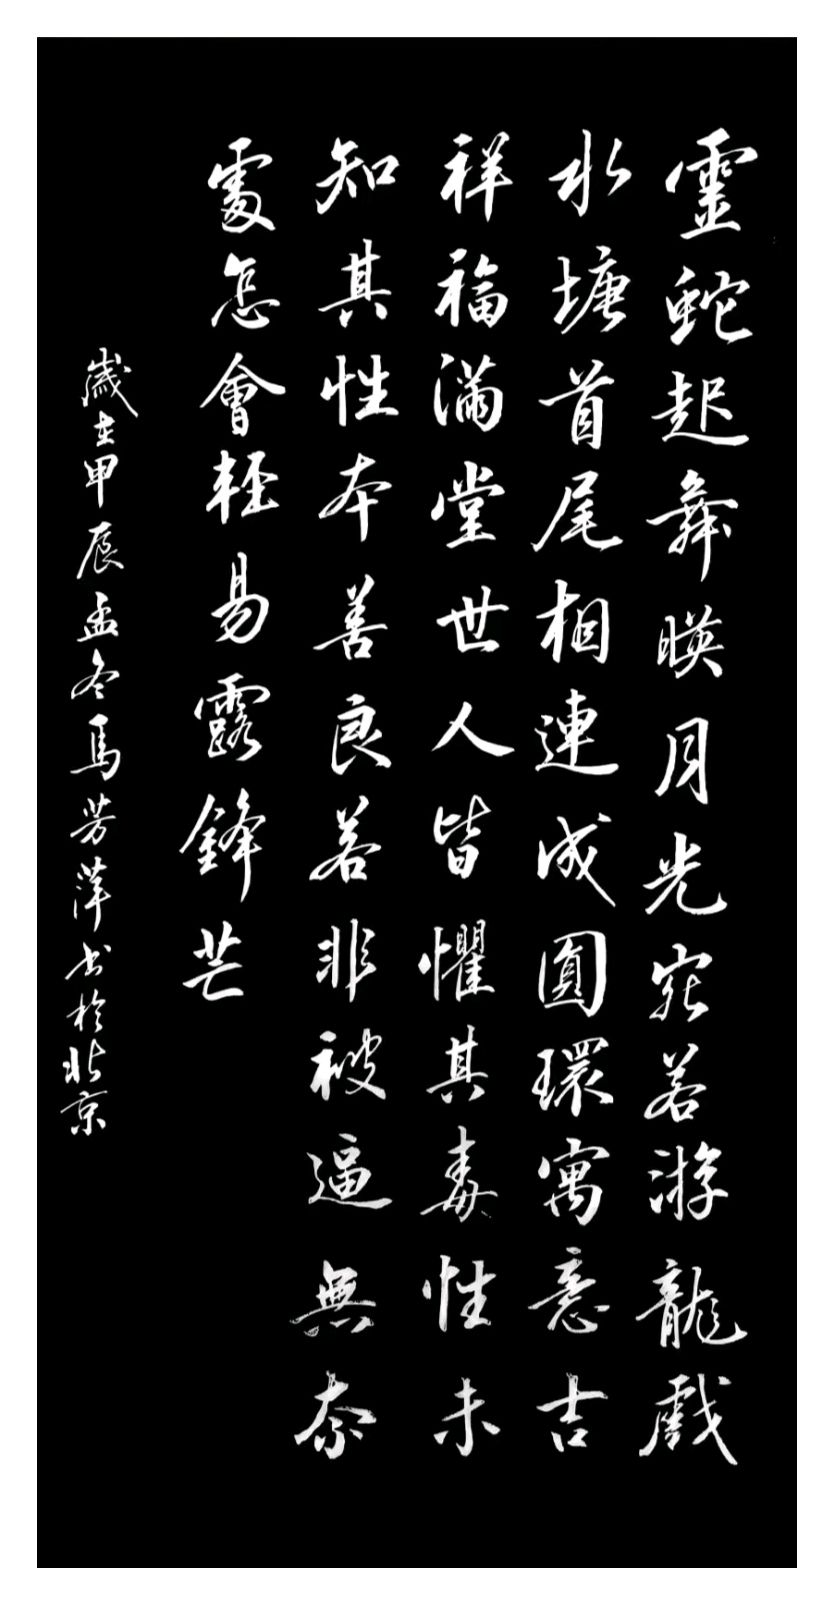 靈蛇起舞暎月光宛若游龍戲
水塘首尾相連成圓環寓意吉
祥福滿堂世人皆懼其毒性未
知其性本善良若非被逼無奈
處怎會輕易露鋒芒
歲在甲辰孟冬馬芳萍书於北京